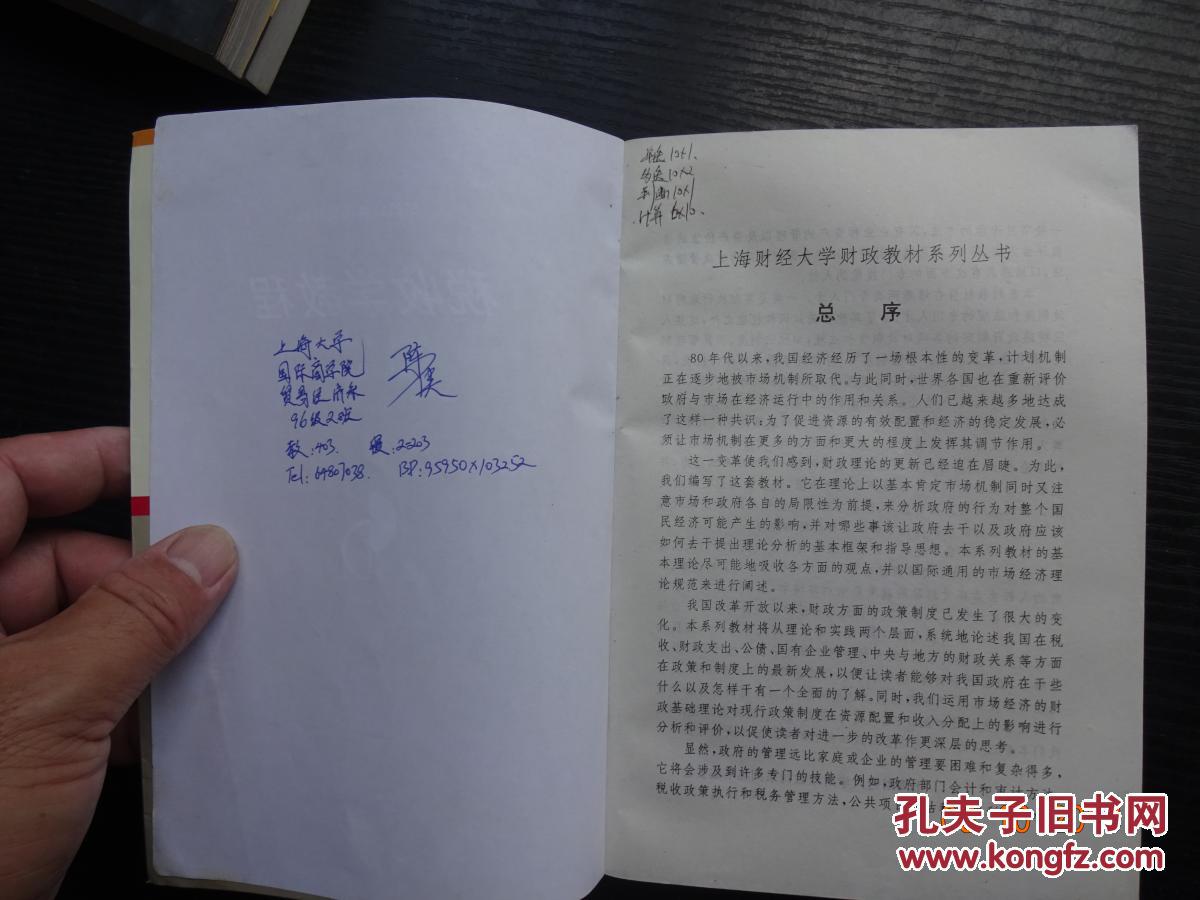 税收学教程
上海大学
国际商学院
贸易经济系
96级2班
教:403. 寝:2-203
Tel: 64807038. BP: 95950X103252
单选 10X1、
多选 10X2
判断 10X1
计算 6X10、
上海财经大学财政教材系列丛书
总 序
80年代以来,我国经济经历了一场根本性的变革,计划机制
正在逐步地被市场机制所取代。与此同时,世界各国也在重新评价
政府与市场在经济运行中的作用和关系。人们已越来越多地达成
了这样一种共识:为了促进资源的有效配置和经济的稳定发展,必
须让市场机制在更多的方面和更大的程度上发挥其调节作用。
这一变革使我们感到,财政理论的更新已经迫在眉睫。为此,
我们编写了这套教材。它在理论上以基本肯定市场机制同时又注
意市场和政府各自的局限性为前提,来分析政府的行为对整个国
民经济可能产生的影响,并对哪些事该让政府去干以及政府应该
如何去干提出理论分析的基本框架和指导思想。本系列教材的基
本理论尽可能地吸收各方面的观点,并以国际通用的市场经济理
论规范来进行阐述。
我国改革开放以来,财政方面的政策制度已发生了很大的变
化。本系列教材将从理论和实践两个层面,系统地论述我国在税
收、财政支出、公债、国有企业管理、中央与地方的财政关系等方面
在政策和制度上的最新发展,以便让读者能够对我国政府在干些
什么以及怎样干有一个全面的了解。同时,我们运用市场经济的财
政基础理论对现行政策制度在资源配置和收入分配上的影响进行
分析和评价,以促使读者对进一步的改革作更深层的思考。
显然,政府的管理远比家庭或企业的管理要困难和复杂得多,
它将会涉及到许多专门的技能。例如,政府部门会计和审计方法、
税收政策执行和税务管理方法,公共项
孔夫子旧书网
www.kongfz.com